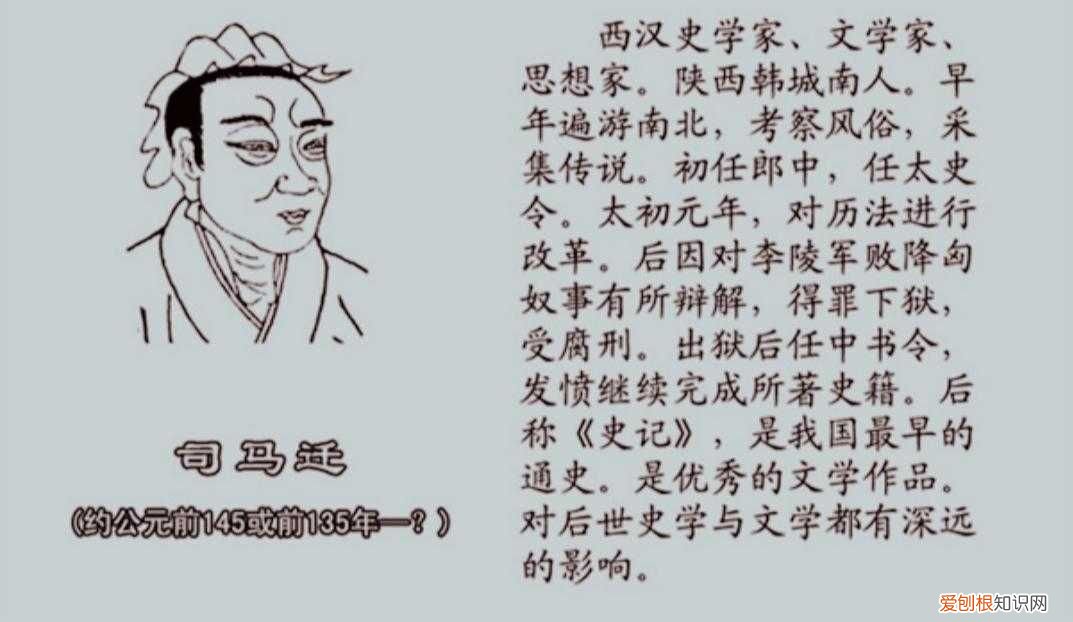 西汉史学家、文学家、
思想家。陕西韩城南人。早
年遍游南北，考察风俗，采
集传说。初任郎中，任太史
令。太初元年，对历法进行
改革。后因对李陵军败降匈
奴事有所辩解，得罪下狱，
受腐刑。出狱后任中书令，
发愤继续完成所著史籍。后
称《史记》，是我国最早的
通史。是优秀的文学作品。
对后世史学与文学都有深远
的影响。
司马迁
（约公元前145或前135年—？）
爱刨根知识网